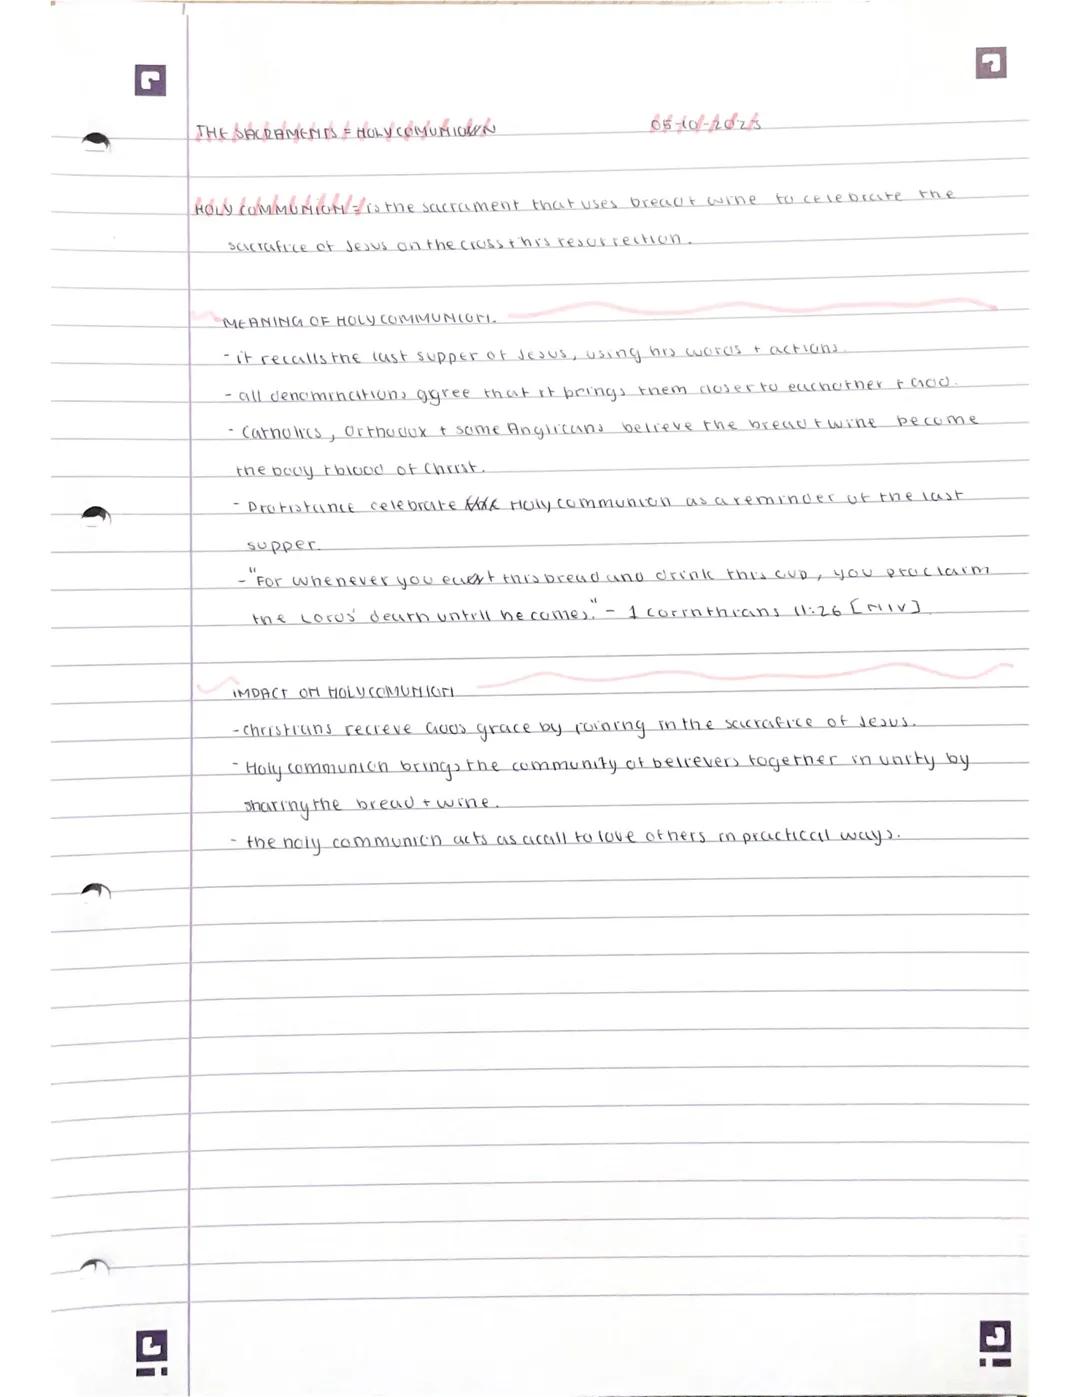 THE SACRAMENTS = HOLY COMUNIOWN 05-10-2023
HOLY COMMUNION = is the sacrament that uses bread + wine to celebrate the
sacrafice of Jesus on the cross + his resurrection.
MEANING OF HOLY COMMUNION.
- it recalls the last supper of Jesus, using his words + actions.
- all denominations ggree that it brings them closer to eachother + God.
- Catholics, Orthodox + some Anglicans believe the bread + wine become
the body + blood of Christ.
- Protistance celebrate Holy communion as a reminder of the last
supper.
- "For whenever you eat this bread and drink this cup, you proclaim
the Lords' death untill he comes." - 1 Corinthians 11:26 [NIV]
IMPACT ON HOLY COMUNION
- Christians recieve Gods grace by joining in the sacrafice of Jesus.
- Holy communion brings the community of believers together in unity by
sharing the bread + wine.
- the holy communion acts as a call to love others in practical ways.